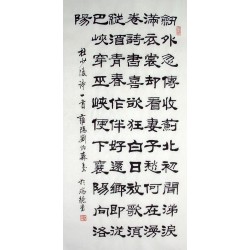 劍外忽傳收薊北初聞涕淚
滿衣裳卻看妻子愁何在漫
卷詩書喜欲狂白日放歌須
縱酒青春作伴好還鄉即從
巴峽穿巫峽便下襄陽向洛
陽
杜少陵詩一首 雍陽劉炳森書於